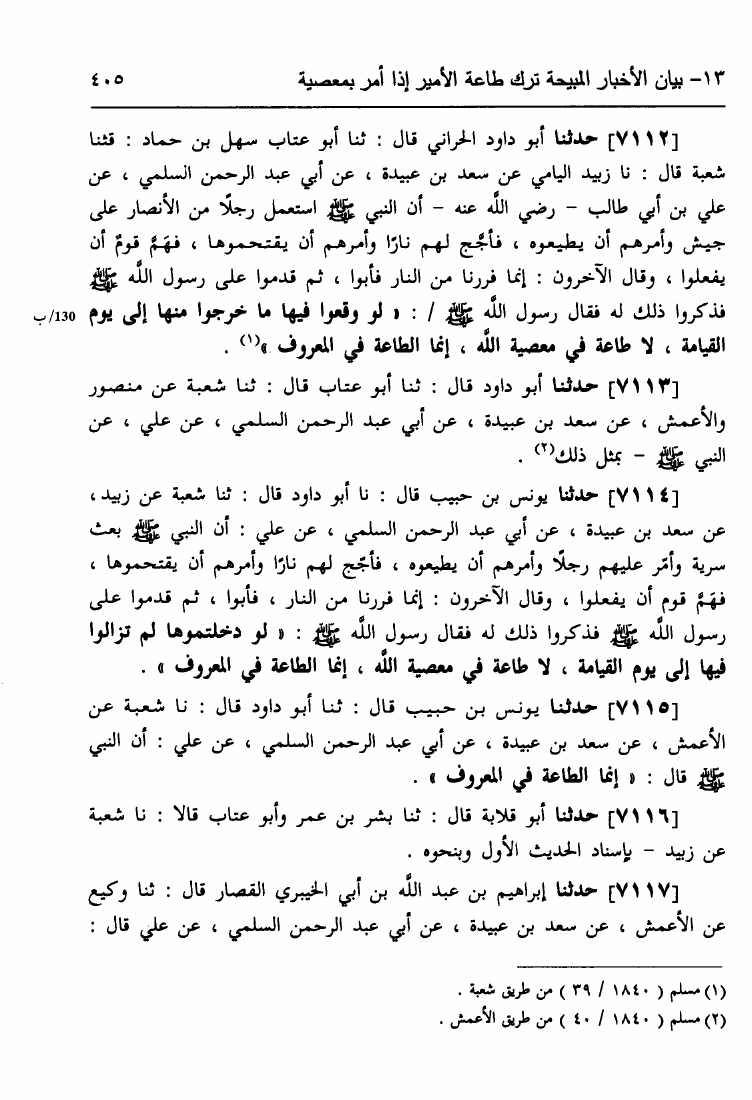 ١٣- بيان الأخبار المبيحة ترك طاعة الأمير إذا أمر بمعصية ٤٠٥
[٧١١٢] حدثنا أبو داود الحراني قال : ثنا أبو عتاب سهل بن حماد : قثنا
شعبة قال : نا زبيد اليامي عن سعد بن عبيدة ، عن أبي عبد الرحمن السلمي ، عن
علي بن أبي طالب - رضي اللَّه عنه - أن النبي ﷺ استعمل رجلًا من الأنصار على
جيش وأمرهم أن يطيعوه ، فأجَّج لهم نارًا وأمرهم أن يقتحموها ، فهَمَّ قومٌ أن
يفعلوا ، وقال الآخرون : إنما فررنا من النار فأبوا ، ثم قدموا على رسول اللَّه ﷺ
فذكروا ذلك له فقال رسول اللَّه ﷺ / : « لو وقعوا فيها ما خرجوا منها إلى يوم 130/ب
القيامة ، لا طاعة في معصية اللَّه ، إنما الطاعة في المعروف »(١) .
[٧١١٣] حدثنا أبو داود قال : ثنا أبو عتاب قال : ثنا شعبة عن منصور
والأعمش ، عن سعد بن عبيدة ، عن أبي عبد الرحمن السلمي ، عن علي ، عن
النبي ﷺ - بمثل ذلك(٢) .
[٧١١٤] حدثنا يونس بن حبيب قال : نا أبو داود قال : ثنا شعبة عن زبيد،
عن سعد بن عبيدة ، عن أبي عبد الرحمن السلمي ، عن علي : أن النبي ﷺ بعث
سرية وأمّر عليهم رجلًا وأمرهم أن يطيعوه ، فأجّج لهم نارًا وأمرهم أن يقتحموها ،
فهَمَّ قوم أن يفعلوا ، وقال الآخرون : إنما فررنا من النار ، فأبوا ، ثم قدموا على
رسول اللَّه ﷺ فذكروا ذلك له فقال رسول اللَّه ﷺ : « لو دخلتموها لم تزالوا
فيها إلى يوم القيامة ، لا طاعة في معصية اللَّه ، إنما الطاعة في المعروف » .
[٧١١٥] حدثنا يونس بن حبيب قال : ثنا أبو داود قال : نا شعبة عن
الأعمش ، عن سعد بن عبيدة ، عن أبي عبد الرحمن السلمي ، عن علي : أن النبي
ﷺ قال : « إنما الطاعة في المعروف » .
[٧١١٦] حدثنا أبو قلابة قال : ثنا بشر بن عمر وأبو عتاب قالا : نا شعبة
عن زبيد - بإسناد الحديث الأول وبنحوه .
[٧١١٧] حدثنا إبراهيم بن عبد اللَّه بن أبي الخيبري القصار قال : ثنا وكيع
عن الأعمش ، عن سعد بن عبيدة ، عن أبي عبد الرحمن السلمي ، عن علي قال :
(١) مسلم ( ١٨٤٠ / ٣٩ ) من طريق شعبة .
(٢) مسلم ( ١٨٤٠ / ٤٠ ) من طريق الأعمش .